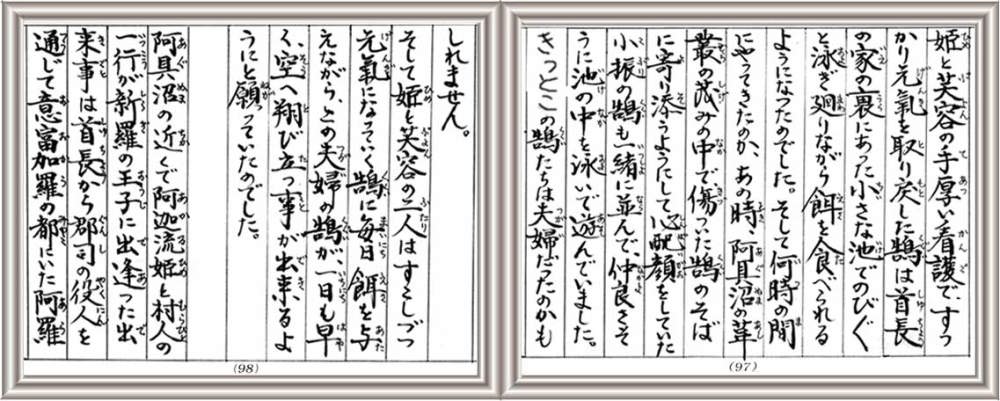 姫と芙容の手厚い看護で、すっ
かり元氣を取り戻した鵠は首長
の家の裏にあった小さな池でのびのび
と泳ぎ廻りながら餌を食べられる
ようになったのでした。そして何時の間
にやってきたのか、あの時、阿具沼の葦
叢の茂みの中で傷ついた鵠のそば
に寄り添うようにして心配顔をしていた
小振の鵠も一緒に並んで、仲良さそ
うに池の中を泳いで遊んでいました。
きっとこの鵠たちは夫婦だったのかも
(97)
しれません。
そして姫と芙容の二人はすこしづつ
元氣になっていく鵠に毎日餌を与
えながら、この夫婦の鵠が、一日も早
く、空へ翔び立つ事が出来るよ
うにと願っていたのでした。
阿具沼の近くで阿迦流姫と村人の
一行が新羅の王子に出逢った出
来事は首長から郡司の役人を
通じて意富加羅の都にいた阿羅
(98)